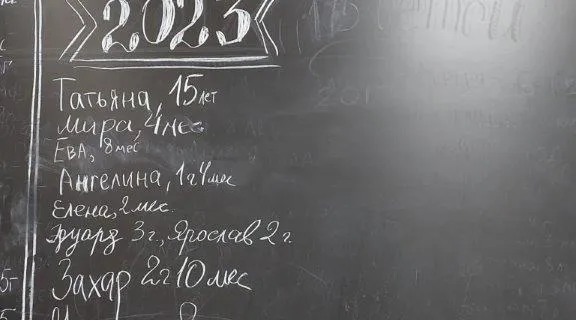 2023
Татьяна, 15 лет
Мира, 4 мес
Ева, 8 мес
Ангелина, 1г 4 мес
Елена, 2 мес.
Эдуард 3 г., Ярослав 2 г.
Захар 2г 10 мес